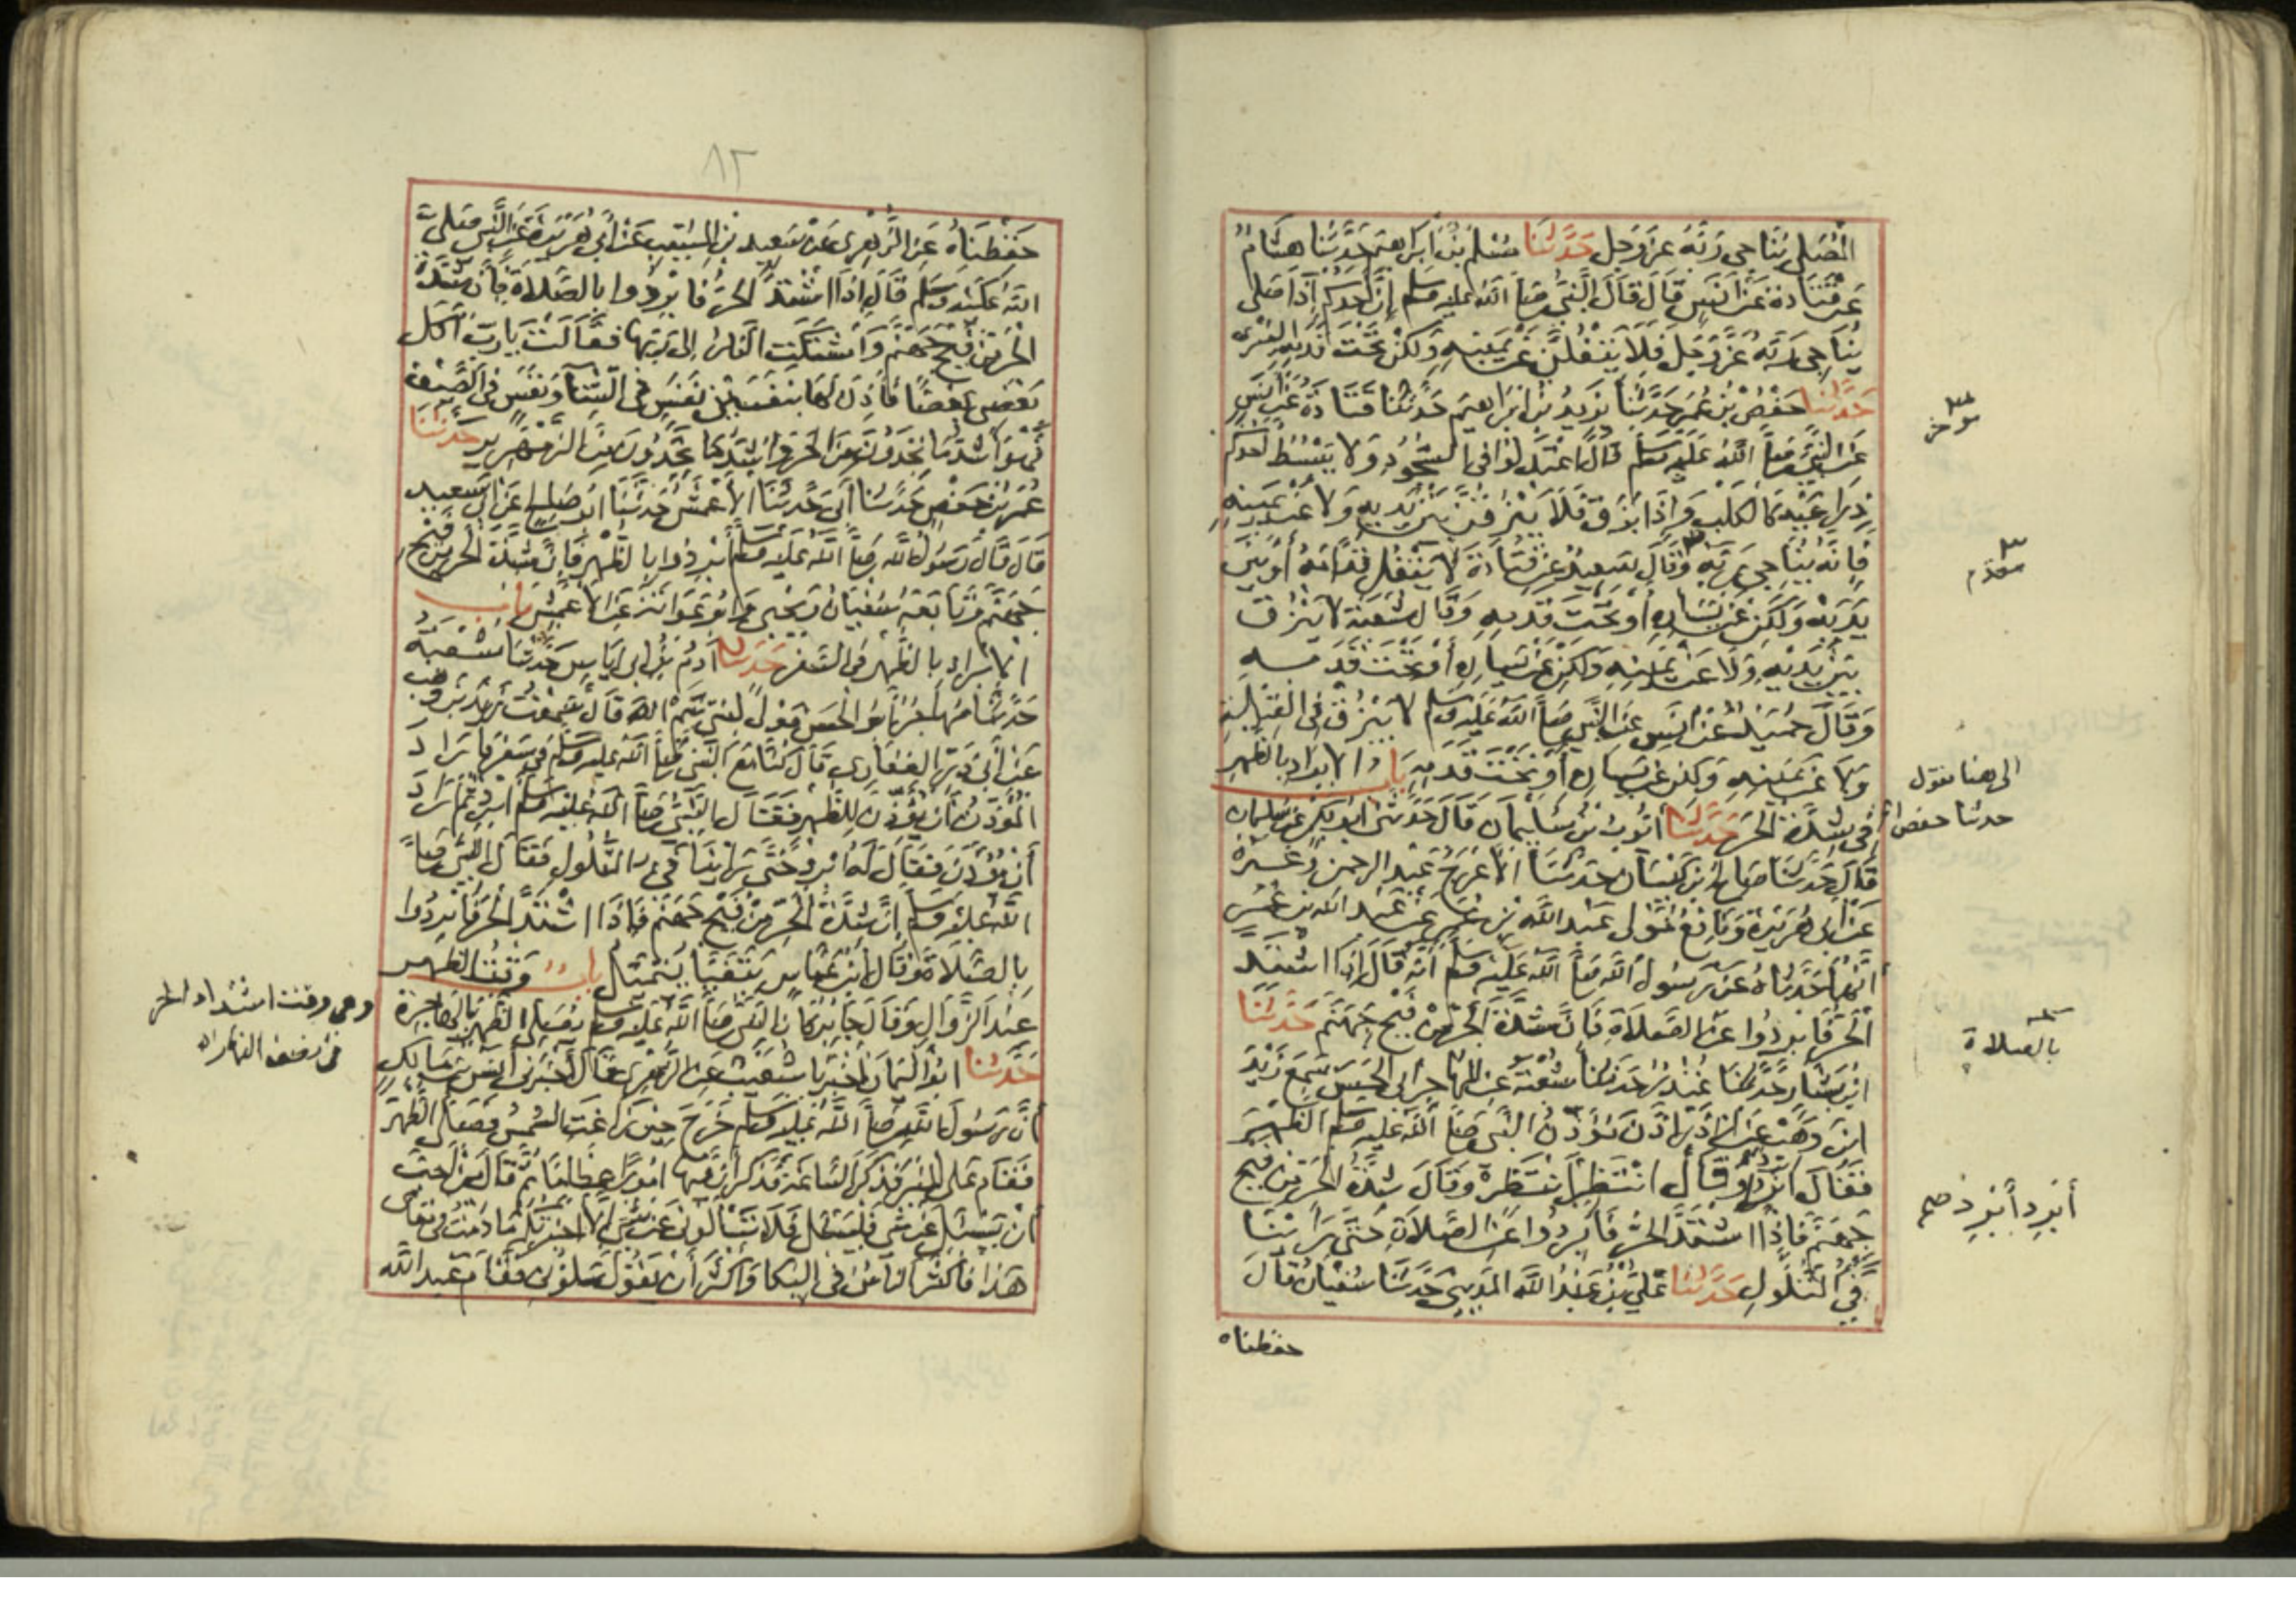 المُصَلِّي يُنَاجِي رَبَّهُ عَزَّ وَجَل حَدَّثَنَا مُسْلِمُ بْنُ اِبَرَاهِيمَ حَدَّثَنَا هِشَامٌ
عَن قَتَادَةَ عَنْ اَنَسٍ قَالَ قَالَ النَّبِيُّ صَلَّى اللهُ عليه وسلم إِنَّ أَحَدَكُم إِذَا صَلَّى
يُنَاجِى رَبَّهُ عَزَّ وَجَلَّ فَلَا يَتْفُلَنَّ عَنْ يَمِينِهِ وَلَكِنْ تَحْتَ قَدَمِهِ اليُسْرَى
حَدَّثَنَا حَفْصُ بْنُ عُمَرَ حَدَّثَنَا يَزِيدُ بْنُ اِبْرَاهِيمَ حَدَّثَنَا قَتَادَةُ عَنْ اَنَسٍ
عَنِ النَّبِيِّ صَلَّى اللهُ عَلَيْهِ وَسَلَّم قَالَ اعْتَدِلُوا فِى السُّجُودِ وَلَا يَبْسُطْ أَحَدُكُم
ذِرَاعَيْهِ كَالكَلْبِ وَإِذَا بَزَقَ فَلَا يَبْزُقَنَّ بَيْنَ يَدَيهِ وَلَا عَنْ يَمِينِهِ
فَإِنَّهُ يُنَاجِى رَبَّهِ وَقَالَ سَعِيدٌ عَنْ قَتَادَةَ لَا يَتْفُل قُدَّامَهُ أَوْ بَيْنَ
يَدَيْهِ وَلَكِنْ عَنْ يَسَارِهِ أَوْ تَحْتَ قَدَمِهِ وَقَالَ شُعْبَة لَا يَبْزُق
بَيْنَ يَدَيْهِ وَلَا عَنْ يَمِيْنِهِ وَلَكِنْ عَنْ يَسَارِهِ أَوْ تَحْتَ قَدَمِهِ
وَقَالَ حُمَيْدٌ عَنْ اَنَسٍ عَنِ النَّبِي صَلَّى اللهُ عَلَيْهِ وَسلم لَا يَبْزُقْ فِي القِبْلَةِ
وَلَا عَنْ يَمِيْنِهِ وَلَكِنْ عَنْ يَسَارِهِ أَوْ تَحْتَ قَدَمِهِ بَابُ الابراد بالظهر
فِي شِدَّةِ الحَرِّ حَدَّثَنَا اَيُّوبُ بْنُ سُلَيْمَانَ قَالَ حَدَّثَنَى ابُو بَكْر عَنْ سُلَيمان
قَالَ حَدَّثَنَا صَالِحُ بْنُ كَيْسَانَ حَدَّثَنَا الأَعْرَجُ عَبْد الرحمن وَغَيْرُهُ
عَنْ اَبِى هُرَيْرَةَ وَنَافِعٌ مَوْلَى عَبْدِ اللهِ بْنِ عُمَر عَنْ عَبْدِ اللهِ بن عُمَرَ
أَنَّهُمَا حَدَّثَاهُ عَنْ رَسُولِ اللهِ صَلَّى اللهُ عَلَيْهِ وَسلم أَنَّهُ قَالَ إِذَا اشْتَدَّ
الحَرُّ فَابْرِدُوا عَنِ الصَّلَاةِ فَاِنَّ شِدَّةَ الحَرِّ مِنْ فَيْحِ جَهَنَّمَ حَدَّثَنَا
ابْنُ بَشَّار حَدَّثَنَا غُنْدَرٌ حَدَّثَنَا شُعْبَةُ عَنِ المُهَاجِرِ اَبِى الحَسَنِ سَمِعَ زَيْدَ
ابْنَ وَهْبٍ عَنْ اَبِى ذَرٍّ اذَّنَ مُؤَذِّنُ النَّبِى صَلَّى اللهُ عَلَيْهِ وَسلم الظُّهْرَ
فَقَالَ ابْرِدْ أَوْ قَالَ انْتَظِرْ انْتَظِرْ وَقَالَ شِدَّةُ الحَرِّ مِنْ فَيْحِ
جَهَنَّمَ فَاِذَا اشْتَدَّ الحَرُّ فَأَبْرِدُوا عَنِ الصَّلَاةِ حَتَّى رَأَيْنَا
فَيْءَ التُّلُولِ حَدَّثَنَا عَلِيُّ بْنُ عَبْدُ اللهِ المَدِينِي حَدَّثَنَا سُفْيَانُ قَالَ
حفظناه
مؤخر
مقدم
الى هنا مقول
حدثنا حفص
بالصلاة
أَبْرِد أَبْرِد صح
٨٢
حَفِظْنَاهُ عَنِ الزُّهْرِى عَنْ سَعِيدِ بْنِ المُسَيّبِ عَنْ أَبِى هُرَيْرَةَ عَنِ النَّبِي صَلَّى
اللهُ عَلَيْهِ وَسَلَّم قَالَ إِذَا اشْتَدَّ الحَرُّ فَابْرِدُوا بِالصَّلَاةِ فَاِنَّ شِدَّةَ
الحَرِّ مِنْ فَيْحِ جَهَنَّمَ وَاشْتَكَتِ النَّارُ إِلَى رَبِّهَا فَقَالَتْ يَارَبِّ أَكَلَ
بَعْضِى بَعْضًا فَأَذِنَ لَهَا بِنَفَسَيْنِ نَفَسٍ فِى الشِّتَآءِ وَنَفَسٍ فِى الصَّيْفِ
فَهُوَ أَشَدُّ مَا تَجِدُونَ مِنَ الحَرِّ وَاَشَدُّ مَا تَجِدُونَ مِنَ الزَّمْهَرِيرِ حَدَّثَنَا
عُمَرُ بْنُ حَفْصٍ حَدَّثَنَا اَبِى حَدَّثَنَا الأَعْمَشُ حَدَّثَنَا ابُو صَالِحٍ عَنْ اَبِى سَعِيدٍ
قَالَ قَالَ رَسُولُ اللهِ صَلَّى اللهُ عَلَيهِ وسلم أَبْرِدُوا بِالظُّهْرِ فَاِنَّ شِدَّةَ الحَرِّ مِنْ فَيْحِ
جَهَنَّمَ وَتَابَعَهُ سُفْيَانُ وَيَحْيَى وَابُو عَوَانَةَ عَنِ الأَعْمَشِ بَابُ
الإِبْرَادِ بِالظُّهْرِ فِى السَّفَرِ حَدَّثَنَا آدَمُ بْنُ اَبِى اِيَاسٍ حَدَّثَنَا شُعْبَةُ
حَدَّثَنَا مُهَاجِرٌ ابُو الحَسَنِ مَوْلًى لِبَنِى تَيْمِ اللهِ قَالَ سَمِعْتُ زَيْدَ بْنَ وَهْبٍ
عَنْ اَبِى ذَرٍّ الغِفَارِى قَالَ كُنَّا مَعَ النَّبِى صَلَّى اللهُ عليه وسلم فِى سَفَرٍ فَارَادَ
المُؤَذِّنُ أَنْ يُؤَذِّنَ لِلظُّهْرِ فَقَالَ النَّبِىُّ صَلَّى اللهُ عَلَيْهِ وَسلم أَبْرِدْ ثُمَّ اَرَادَ
أَنْ يُؤَذِّنَ فَقَالَ لَهُ ابْرِدْ حَتَّى رَأَيْنَا فَيْءَ التُّلُولِ فَقَالَ النَّبِىُّ صَلَّى
اللهُ عَلَيْهِ وَسلم إِنَّ شِدَّةَ الحَرِّ مِنْ فَيْحِ جَهَنَّمَ فَاِذَا اشْتَدَّ الحَرُّ فَابْرِدُوا
بِالصَّلَاةِ وَقَالَ ابْنُ عَبَّاسٍ يَتَفَيَّأُ يَتَمَيَّلُ بَابُ وَقْتُ الظُّهْرِ
عِنْدَ الزَّوَالِ وَقَالَ جَابِرٌ كَانَ النَّبِىُّ صَلَّى اللهُ عَلَيْهِ وسلم يُصَلِّى الظُّهْرَ بِالهَاجِرَةِ
حَدَّثَنَا ابُو اليَمَانِ اَخْبَرَنَا شُعَيْبٌ عَنِ الزُّهْرِى قَالَ أَخْبَرَنِى أَنَسُ بْنُ مَالِكٍ
أَنَّ رَسُولَ اللهِ صَلَّى اللهُ عَلَيْهِ وَسلم خَرَجَ حِينَ زَاغَتِ الشَّمْسُ فَصَلَّى الظُّهْرَ
فَقَامَ عَلَى المِنْبَرِ فَذَكَرَ السَّاعَةَ فَذَكَرَ أَنَّ فِيهَا امُورًا عِظَامًا ثُمَّ قَالَ مَنْ أَحَبَّ
أَنْ يَسْئَلَ عَنْ شَىْءٍ فَلْيَسْئَل فَلَا تَسْأَلُونِى عَنْ شَىْءٍ إِلَّا اخْبَرْتُكُمْ مَا دُمْتُ فِى مَقَامِى
هَذَا فَأَكْثَرَ النَّاسُ فِى البُكَا وَأَكْثَرَ أَنْ يَقُولَ سَلُونِى فَقَامَ عَبدُ اللهِ
وهى وقت اشتداد الحر
فى نصف النهار